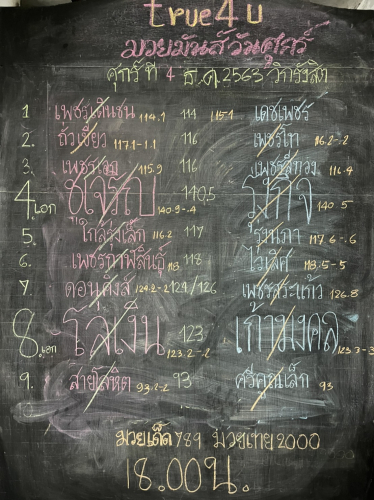 true4u
มวยมันส์วันศุกร์
ศุกร์ ที่ 4 ธ.ค. 2563 วิกรังสิต
1. เพชรเต้นชน 114.1 114 115.1 เดชเพชร
2. ถั่วเขียว 117.1-1.1 116 เพชรไท 116.2-.2
3. 115.9 116 116.4
4 เอก ชูเจริญ 140.9-.4 140.5 ภูมิกิจ 140.5
5. ใกล้รุ่งเล็ก 116.2 117 117.6-.6
6. เพชรกาฬสินธุ์ 118 118 ไวเลิศ 118.5-5
7. ดอนคิงส์ 124.2-2 124/126 เพชรสระแก้ว 126.8
8. เอก โลเงิน 123.2-.2 123 เก้ามงคล 123.3-3
9. สายโลหิต 93.2-2 93 ศรีคูณเล็ก 93
10
มวยเด็ด 789 มวยไทย 2000
18.00 น.